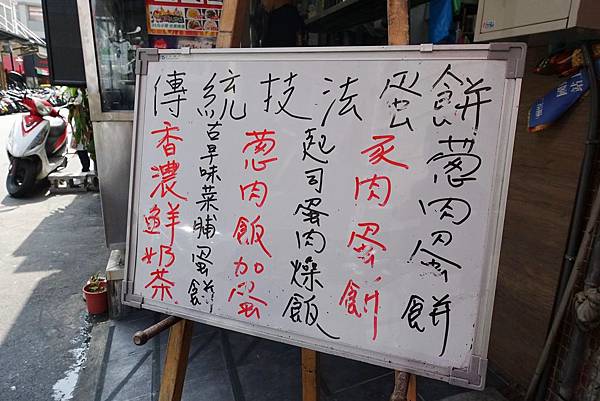 傳統技法蛋餅
蔥肉蛋餅
炙肉蛋餅
起司蛋肉燥飯
蔥肉飯加蛋
古早味菜脯蛋餅
香濃鮮奶茶